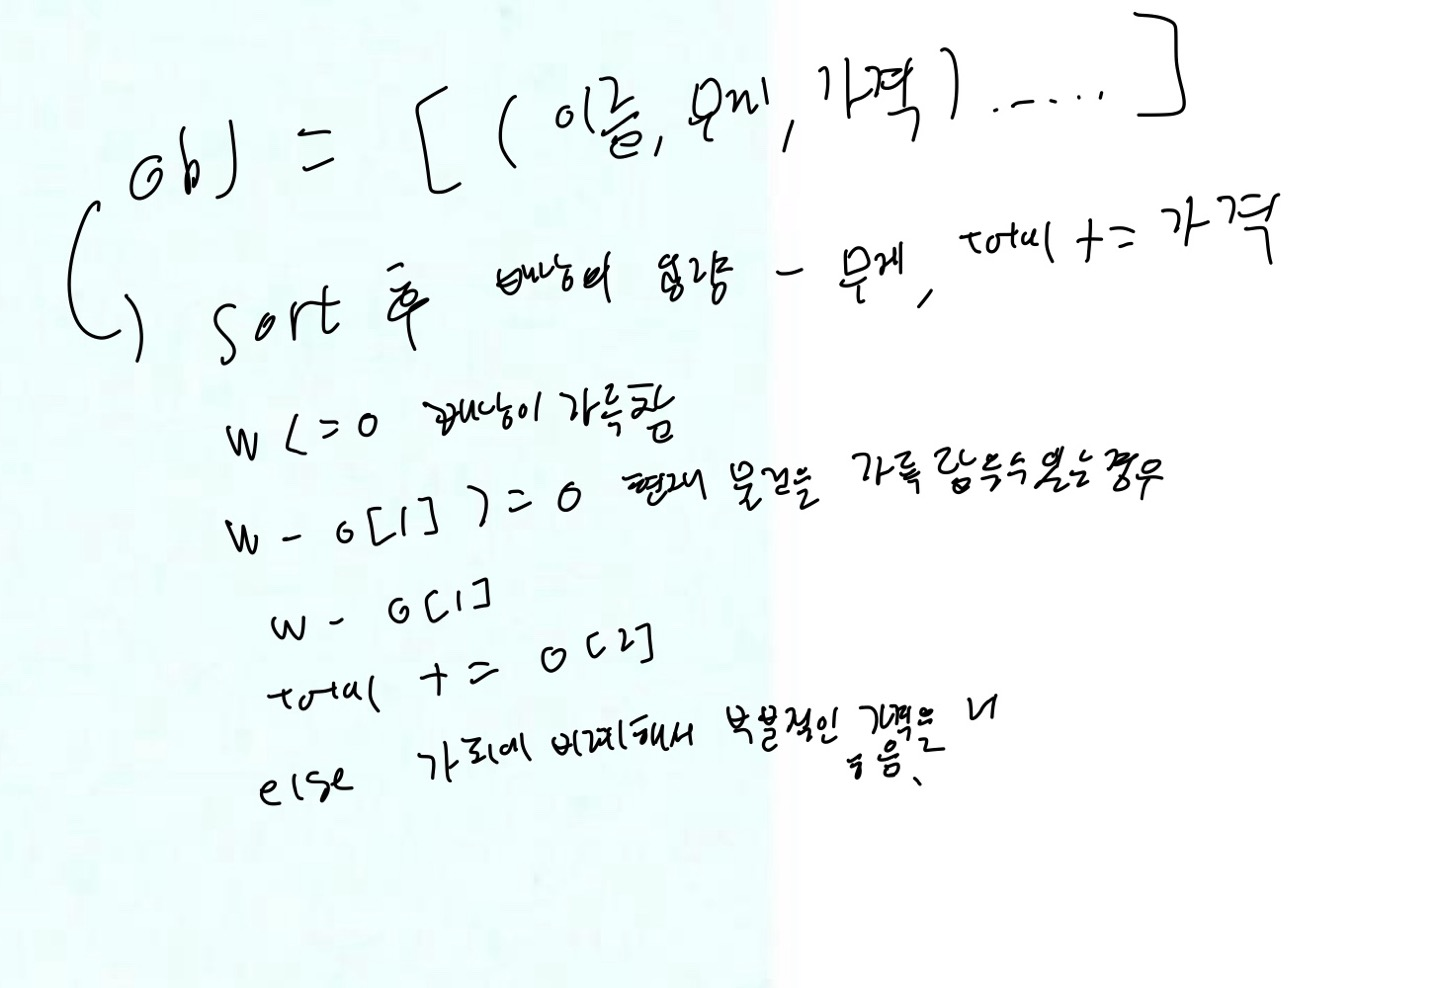 obj = [ (이름, 무게, 가격) ...... ]
sort 후 배낭의 용량 - 무게, total += 가격
w <= 0 배낭이 가득참
w - o[1] >= 0 현재 물건을 가득 담을수 있는 경우
w - o[1]
total += o[2]
else 가치에 비례해서 부분적인 가격을